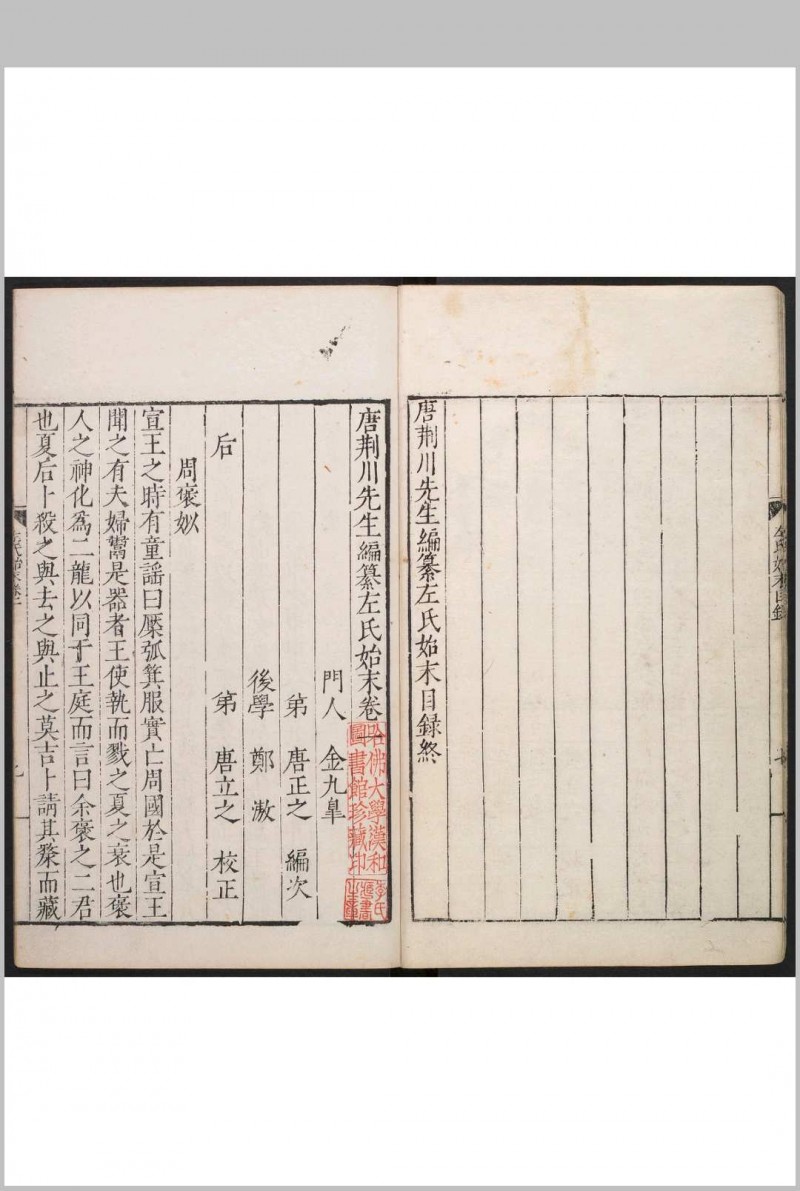 唐荆川先生編纂左氏始末目録終
左氏始末目錄
唐荆川先生編纂左氏始末卷一
門人　金九皐
弟　唐正之　編次
後學　鄭漖
弟　唐立之　校正
后
周襃姒
宣王之時有童謡曰檿弧箕服實亡周國於是宣王
聞之有夫婦鬻是器者王使執而戮之夏之衰也襃
人之神化爲二龍以同于王庭而言曰余襃之二君
也夏后卜殺之與去之與止之莫吉卜請其漦而藏
左氏始末卷一
哈佛大學漢和圖書館珍藏印